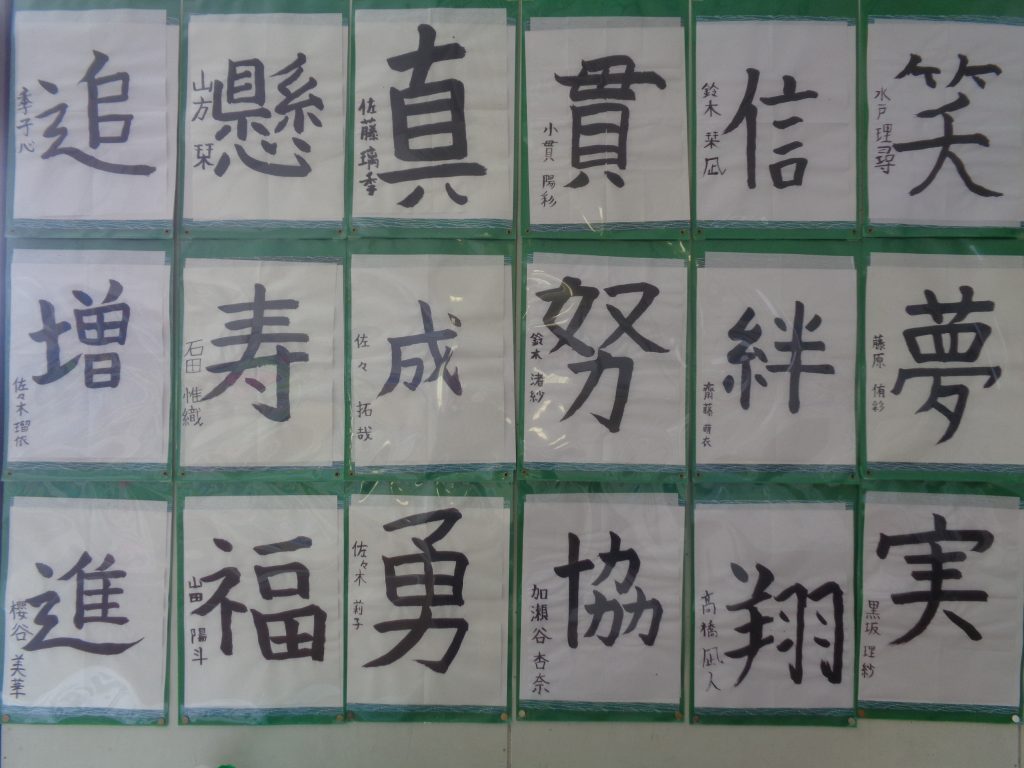 追
季子心
懸
山方 栞
真
佐藤 璃季
貫
小貫 陽彩
信
鈴木 栞凪
笑
水戸 理尋
増
佐々木 瑠依
寿
石田 惟織
成
佐々 拓哉
努
鈴木 渚紗
絆
齋藤 萌衣
夢
藤原 侑彩
進
櫻谷 美華
福
山田 陽斗
勇
佐々木 莉子
協
加瀬谷 杏奈
翔
高橋 凪人
実
黒坂 理紗